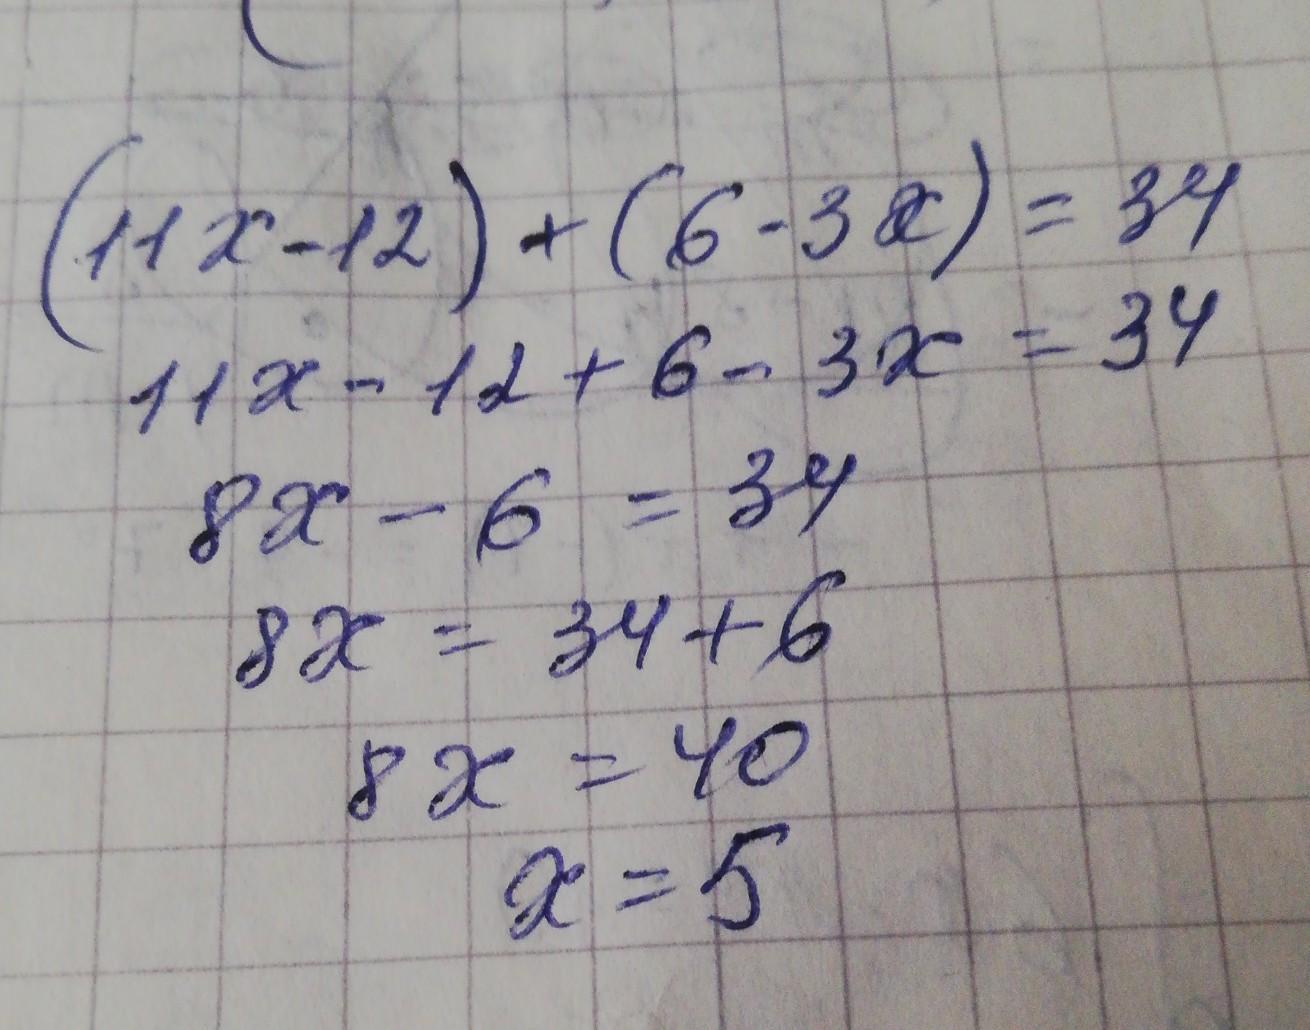 (11x-12)+(6-3x)=34
11x-12+6-3x=34
8x-6=34
8x=34+6
8x=40
x=5